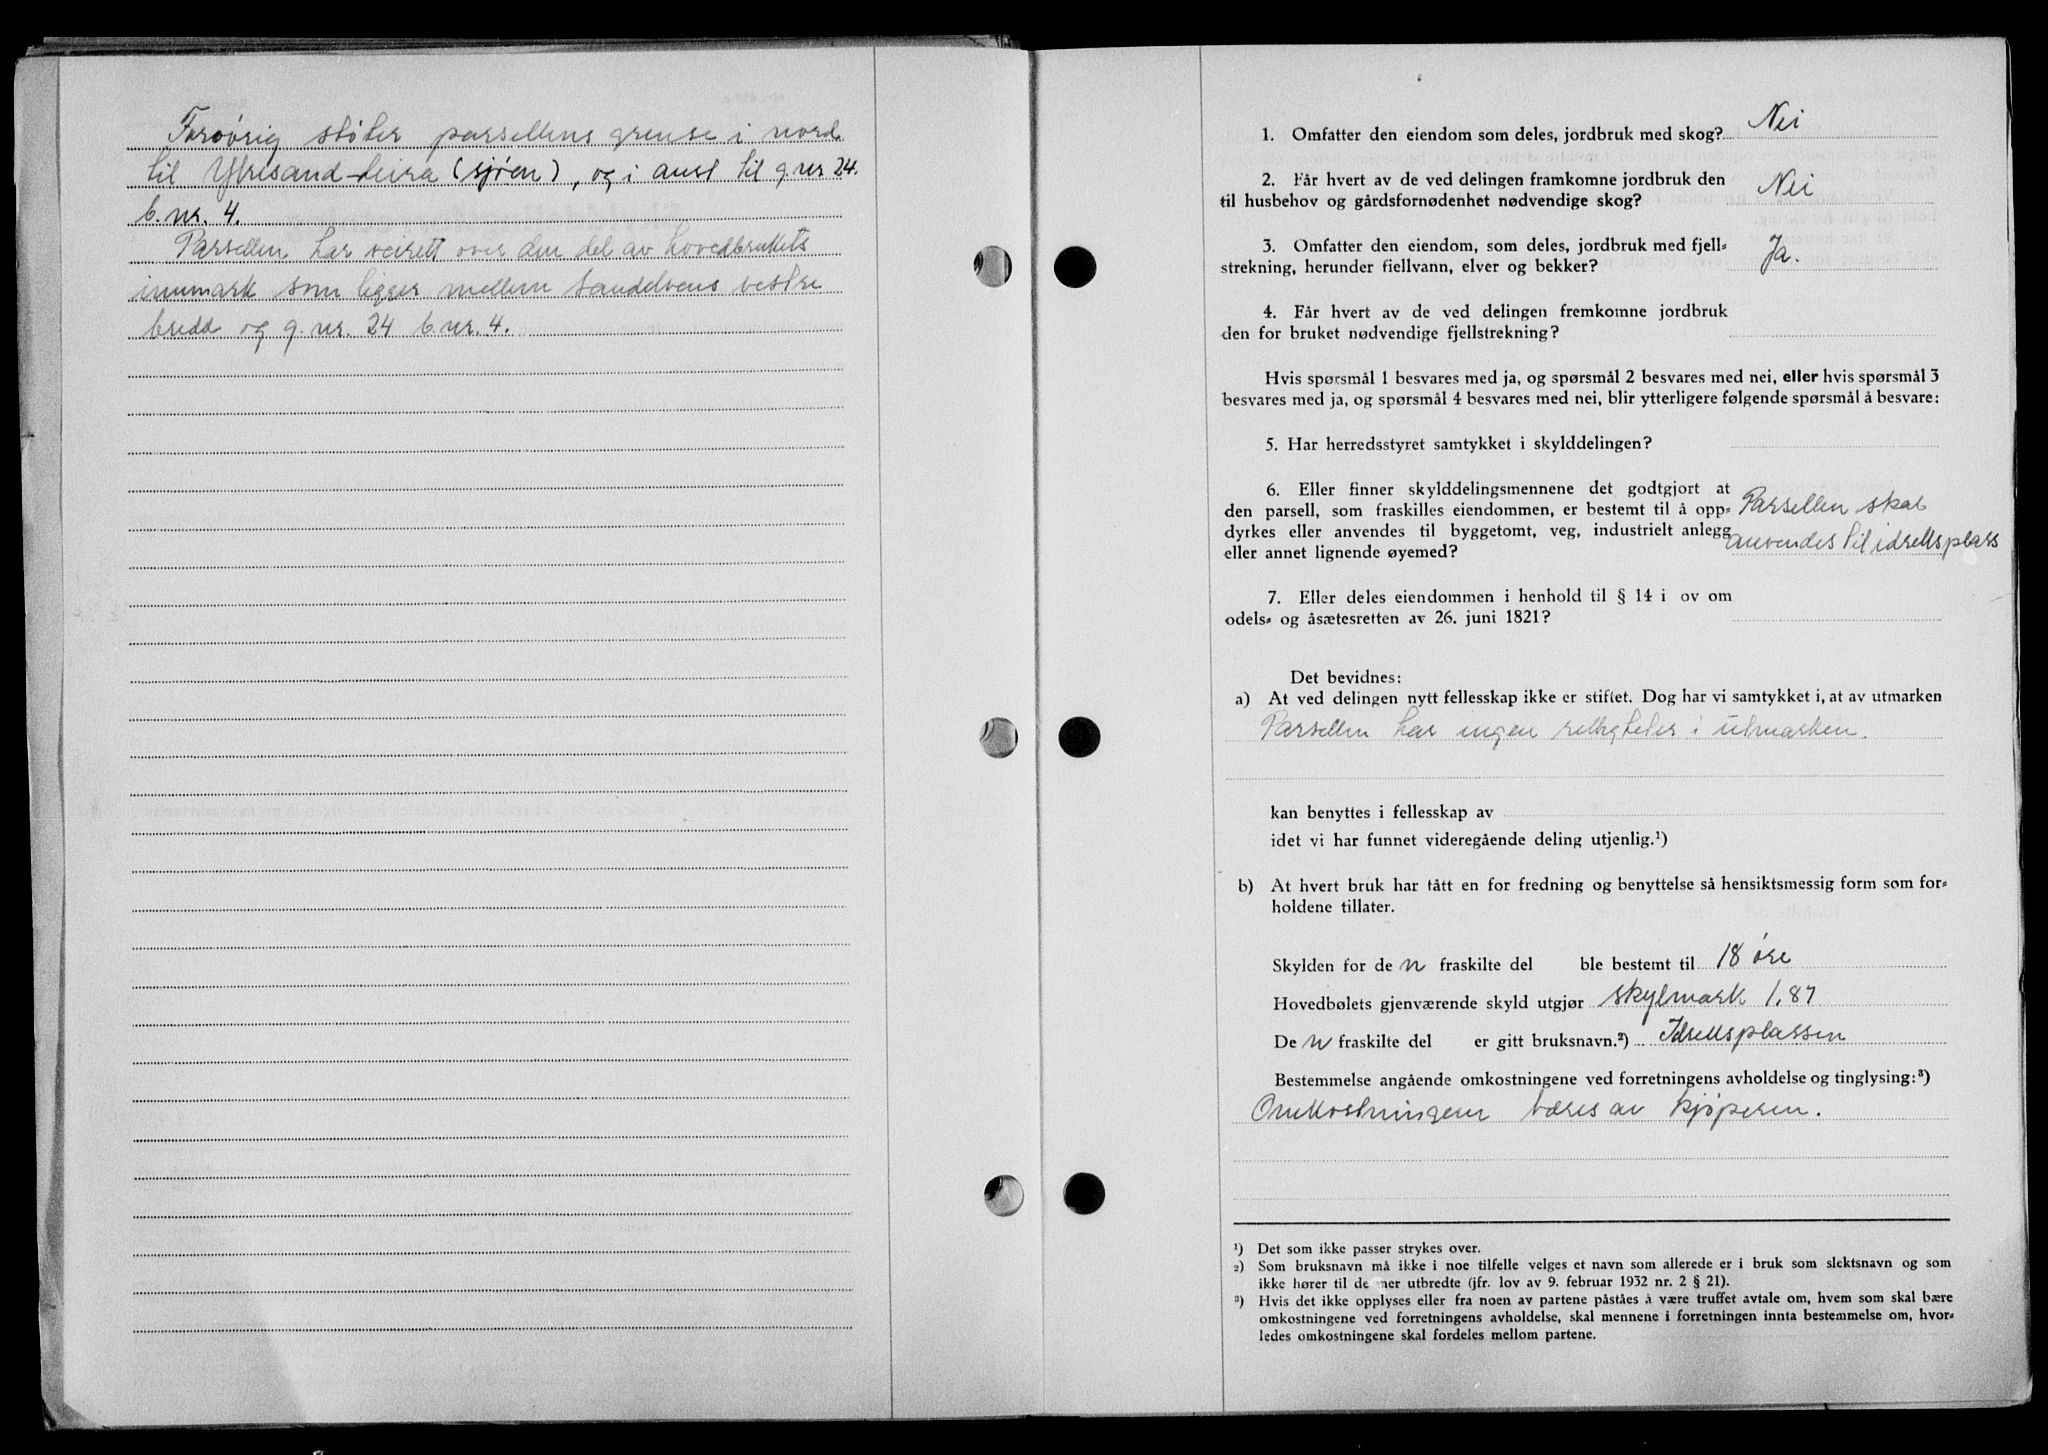 Forøvrig støter parsellens grense i nord
til Ytresand-leira (sjøen), og i aust til g.nr 24.
b.nr. 4.
Parsellen har veirett over den del av hovedbrukets
innmark som ligger mellem Sandelvens vestre
bredd og g.nr. 24 b.nr. 4.
1. Omfatter den eiendom som deles, jordbruk med skog? Nei
2. Får hvert av de ved delingen framkomne jordbruk den
til husbehov og gårdsfornødenhet nødvendige skog? Nei
3. Omfatter den eiendom, som deles, jordbruk med fjell-
strekning, herunder fiellvann, elver og bekker? Ja.
4. Får hvert av de ved delingen fremkomne jordbruk
den for bruket nødvendige fjellstrekning?
Hvis spørsmål 1 besvares med ja, og spørsmål 2 besvares med nei, eller hvis spørsmål 3
besvares med ja, og spørsmål 4 besvares med nei, blir ytterligere følgende spørsmål å besvare:
5. Har herredsstyret samtykket i skylddelingen?
6. Eller finner skylddelingsmennene det godtgjort at
den parsell, som fraskilles eiendommen, er bestemt til å opp- Parsellen skal
dyrkes eller anvendes til byggetomt, veg, industrielt anlegg anvendes til idrettsplass
eller annet lignende øyemed?
7. Eller deles eiendommen i henhold til § 14 i ov om
odels- og åsætesretten av 26. juni 1821?
Det bevidnes:
a) At ved delingen nytt fellesskap ikke er stiftet. Dog har vi samtykket i, at av utmarken
Parsellen har ingen rettigheter i utmarken.
kan benyttes i fellesskap av
idet vi har funnet videregående deling utjenlig.¹)
b) At hvert bruk har fått en for fredning og benyttelse så hensiktsmessig form som for-
holdene tillater.
Skylden for de n fraskilte del ble bestemt til 18 øre
Hovedbølets gjenværende skyld utgjør skylmark 1.87
De n fraskilte del er gitt bruksnavn.²) Idrettsplassen
Bestemmelse angående omkostningene ved forretningens avholdelse og tinglysing:³)
Omkostningene bæres av kjøperen.
¹) Det som ikke passer strykes over.
²) Som bruksnavn må ikke i noe tilfelle velges et navn som allerede er i bruk som slektsnavn og som
ikke hører til de mer utbredte (jfr. lov av 9. februar 1932 nr. 2 § 21).
³) Hvis det ikke opplyses eller fra noen av partene påståes å være truffet avtale om, hvem som skal bære
omkostningene ved forretningens avholdelse, skal mennene i forretningen innta bestemmelse om, hvor-
ledes omkostningene skal fordeles mellom partene.